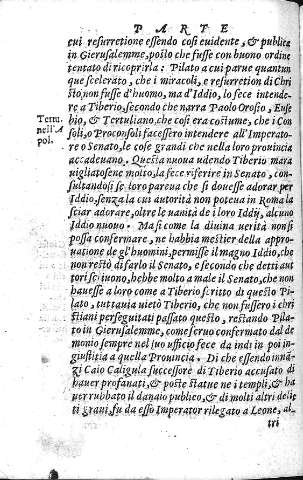 PARTE
cui resurretione essendo cosi euidente, & publica
in Gierusalemme, poi lo che fusse con buono ordine
tentato di ricoprirla: Pilato a cui parue quantun
que scelerato, che i miracoli, e resurretion di Chri
sto, non fusse d'huomo, ma d'Iddio, lo fece intende-
re a Tiberio, secondo che narra Paolo Orosio, Euse
Tertu. bio, & Tertuliano, che cosi era costume, che i Con
nell'A soli, o Proconsoli facessero intendere all'Imperato-
pol. re o Senato, le cose grandi che nella loro prouincia
accadeuano. Questa nuoua udendo Tiberio mara
uigliatosene molto, la fece riferire in Senato, con-
sultandosi se loro pareua che si douesse adorar per
Iddio, senza la cui autorità non poteua in Roma la
sciar adorare, oltre le uanità de i loro Iddij, alcuno
Iddio nuouo. Ma si come la diuina uerità non si
possa confermare, ne habbia mestier della appro-
uatione de gl'huomini, permisse il magno Iddio, che
non restò di farlo il Senato, e secondo che detti aut
tori scriuono, hebbe molto a male il Senato, che non
hauesse a loro come a Tiberio scritto di questo Pi-
lato, tuttauia uietò Tiberio, che non fussero i chri
stiani perseguitati passato questo, restando Pila-
to in Gierusalemme, come seruo confermato dal de
monio sempre nel suo ufficio fece da indi in poi in-
giustitia a quella Prouincia. Di che essendo innā-
zi Caio Caligula successore di Tiberio accusato di
hauer profanati, & poste statue ne i templi, & ha
uer rubbato il danaio publico, & di molti altri delit
ti graui, fu da esso Imperator rilegato a Leone, al-
tri